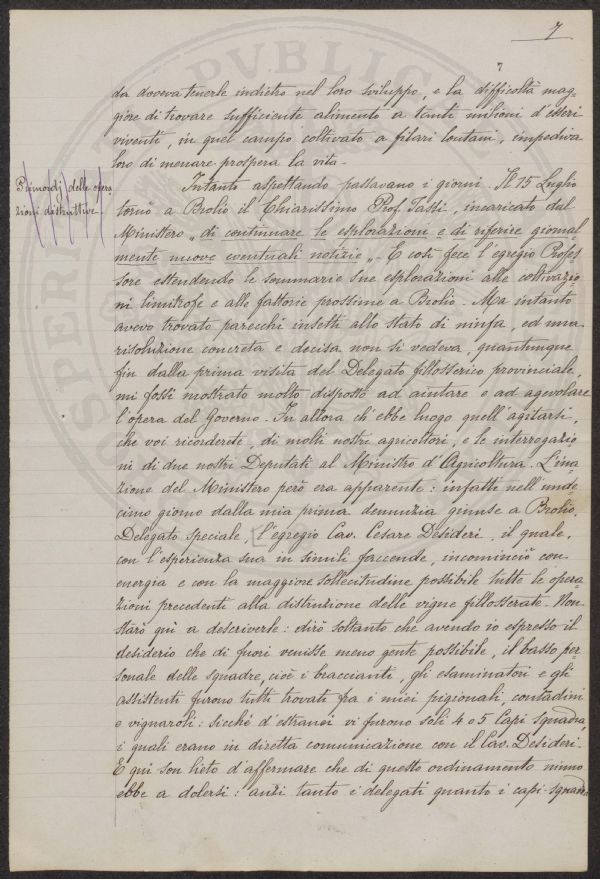 7
7
da doveva tenerle indietro nel loro sviluppo, e la difficoltà mag=
giore di trovare sufficiente alimento a tanti milioni d'esseri
viventi, in quel campo coltivato a filari lontani, impediva
loro di menare prospera la vita -
Primordj delle opera
zioni distruttive.
Intanto aspettando passavano i giorni. Il 15 Luglio
tornò a Brolio il Chiarissimo Prof. Tassi, incaricato dal
Ministero „ di continuare le esplorazioni e di riferire giornal
mente nuove eventuali notizie „. E così fece l'egregio Profes
sore estendendo le sommarie sue esplorazioni alle coltivazio=
ni limitrofe e alle fattorie prossime a Brolio. Ma intanto
avevo trovato parecchi insetti allo stato di ninfa, ed una
risoluzione concreta e decisa non si vedeva, quantunque
fin dalla prima visita del Delegato fillosserico provinciale,
mi fossi mostrato molto disposto ad aiutare e ad agevolare
l'opera del Governo. In allora ch'ebbe luogo quell'agitarsi,
che voi ricorderete, di molti nostri agricoltori, e le interrogazio
ni di due nostri Deputati al Ministro d'Agricoltura. L'ina=
zione del Ministero però era apparente: infatti nell'unde=
cimo giorno dalla mia prima denunzia giunse a Brolio,
Delegato speciale, l'egregio Cav. Cesare Desideri, il quale,
con l'esperienza sua in simili faccende, incominciò con
energia e con la maggiore sollecitudine possibile tutte le opera=
zioni precedenti alla distruzione delle vigne fillosserate. Non
starò quì a descriverle: dirò soltanto che avendo io espresso il
desiderio che di fuori venisse meno gente possibile, il basso per=
sonale delle squadre, cioè i braccianti, gli esaminatori e gli
assistenti furono tutti trovati fra i miei pigionali, contadini
e vignaroli: sicchè d'estranei vi furono soli 4 o 5 Capi squadra,
i quali erano in diretta comunicazione con il Cav. Desideri.
E qui son lieto d'affermare che di questo ordinamento niuno
ebbe a dolersi: anzi tanto i delegati quanto i capi-squadra